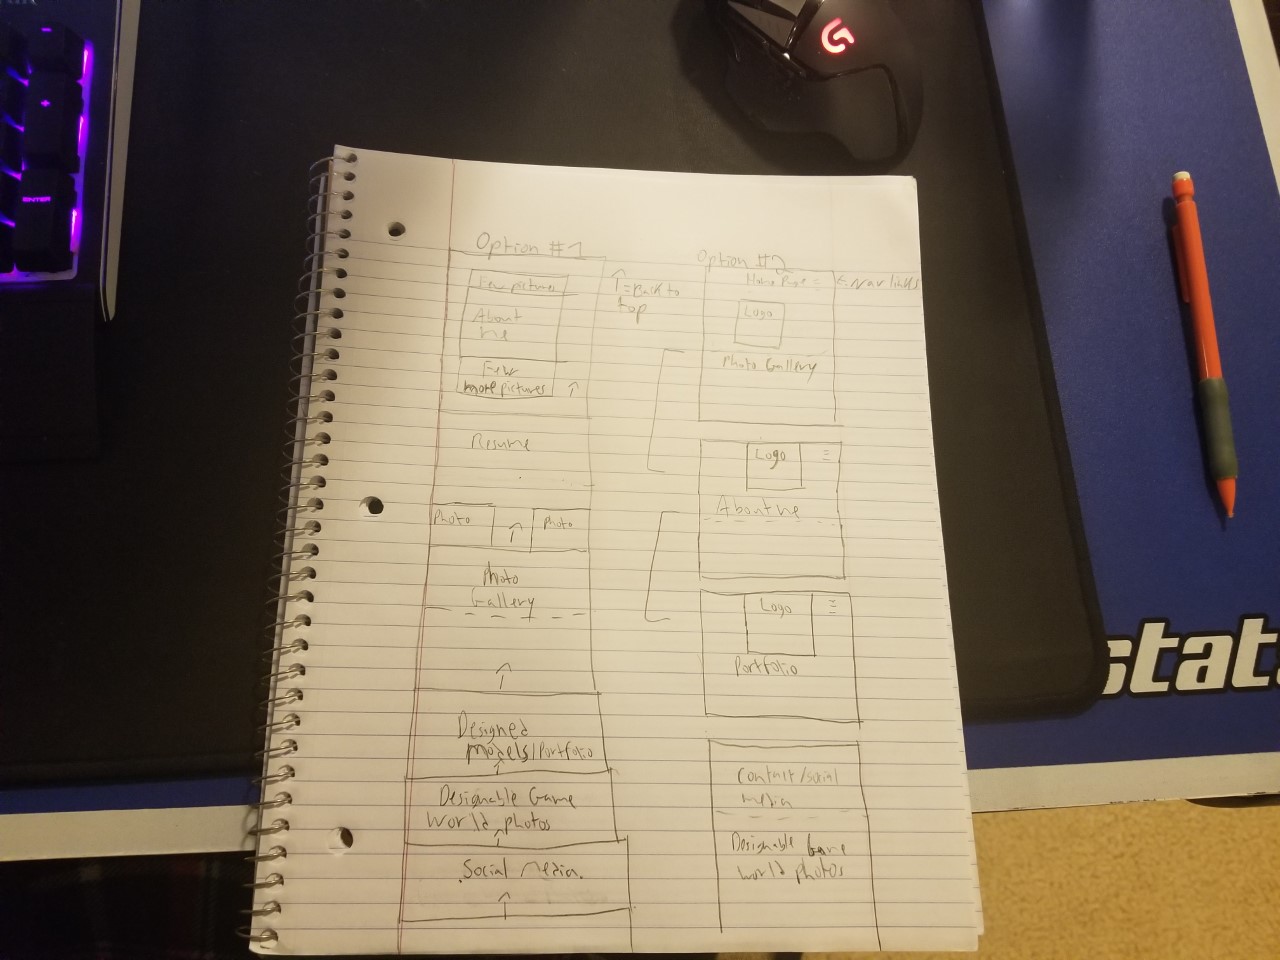 ENTER
Option #1
Few pictures
About
me
Few
more pictures
↑
↑ = Back to
top
Resume
Photo
↑
Photo
Photo
Gallery
↑
Designed
models/Portfolio
↑
Designable Game
World photos
↑
Social media
↑
Option #2
Home Page ≡
← Nav links
Logo
Photo Gallery
Logo
≡
About me
Logo
≡
Portfolio
Contact/social
media
Designable Game
World photos
stat